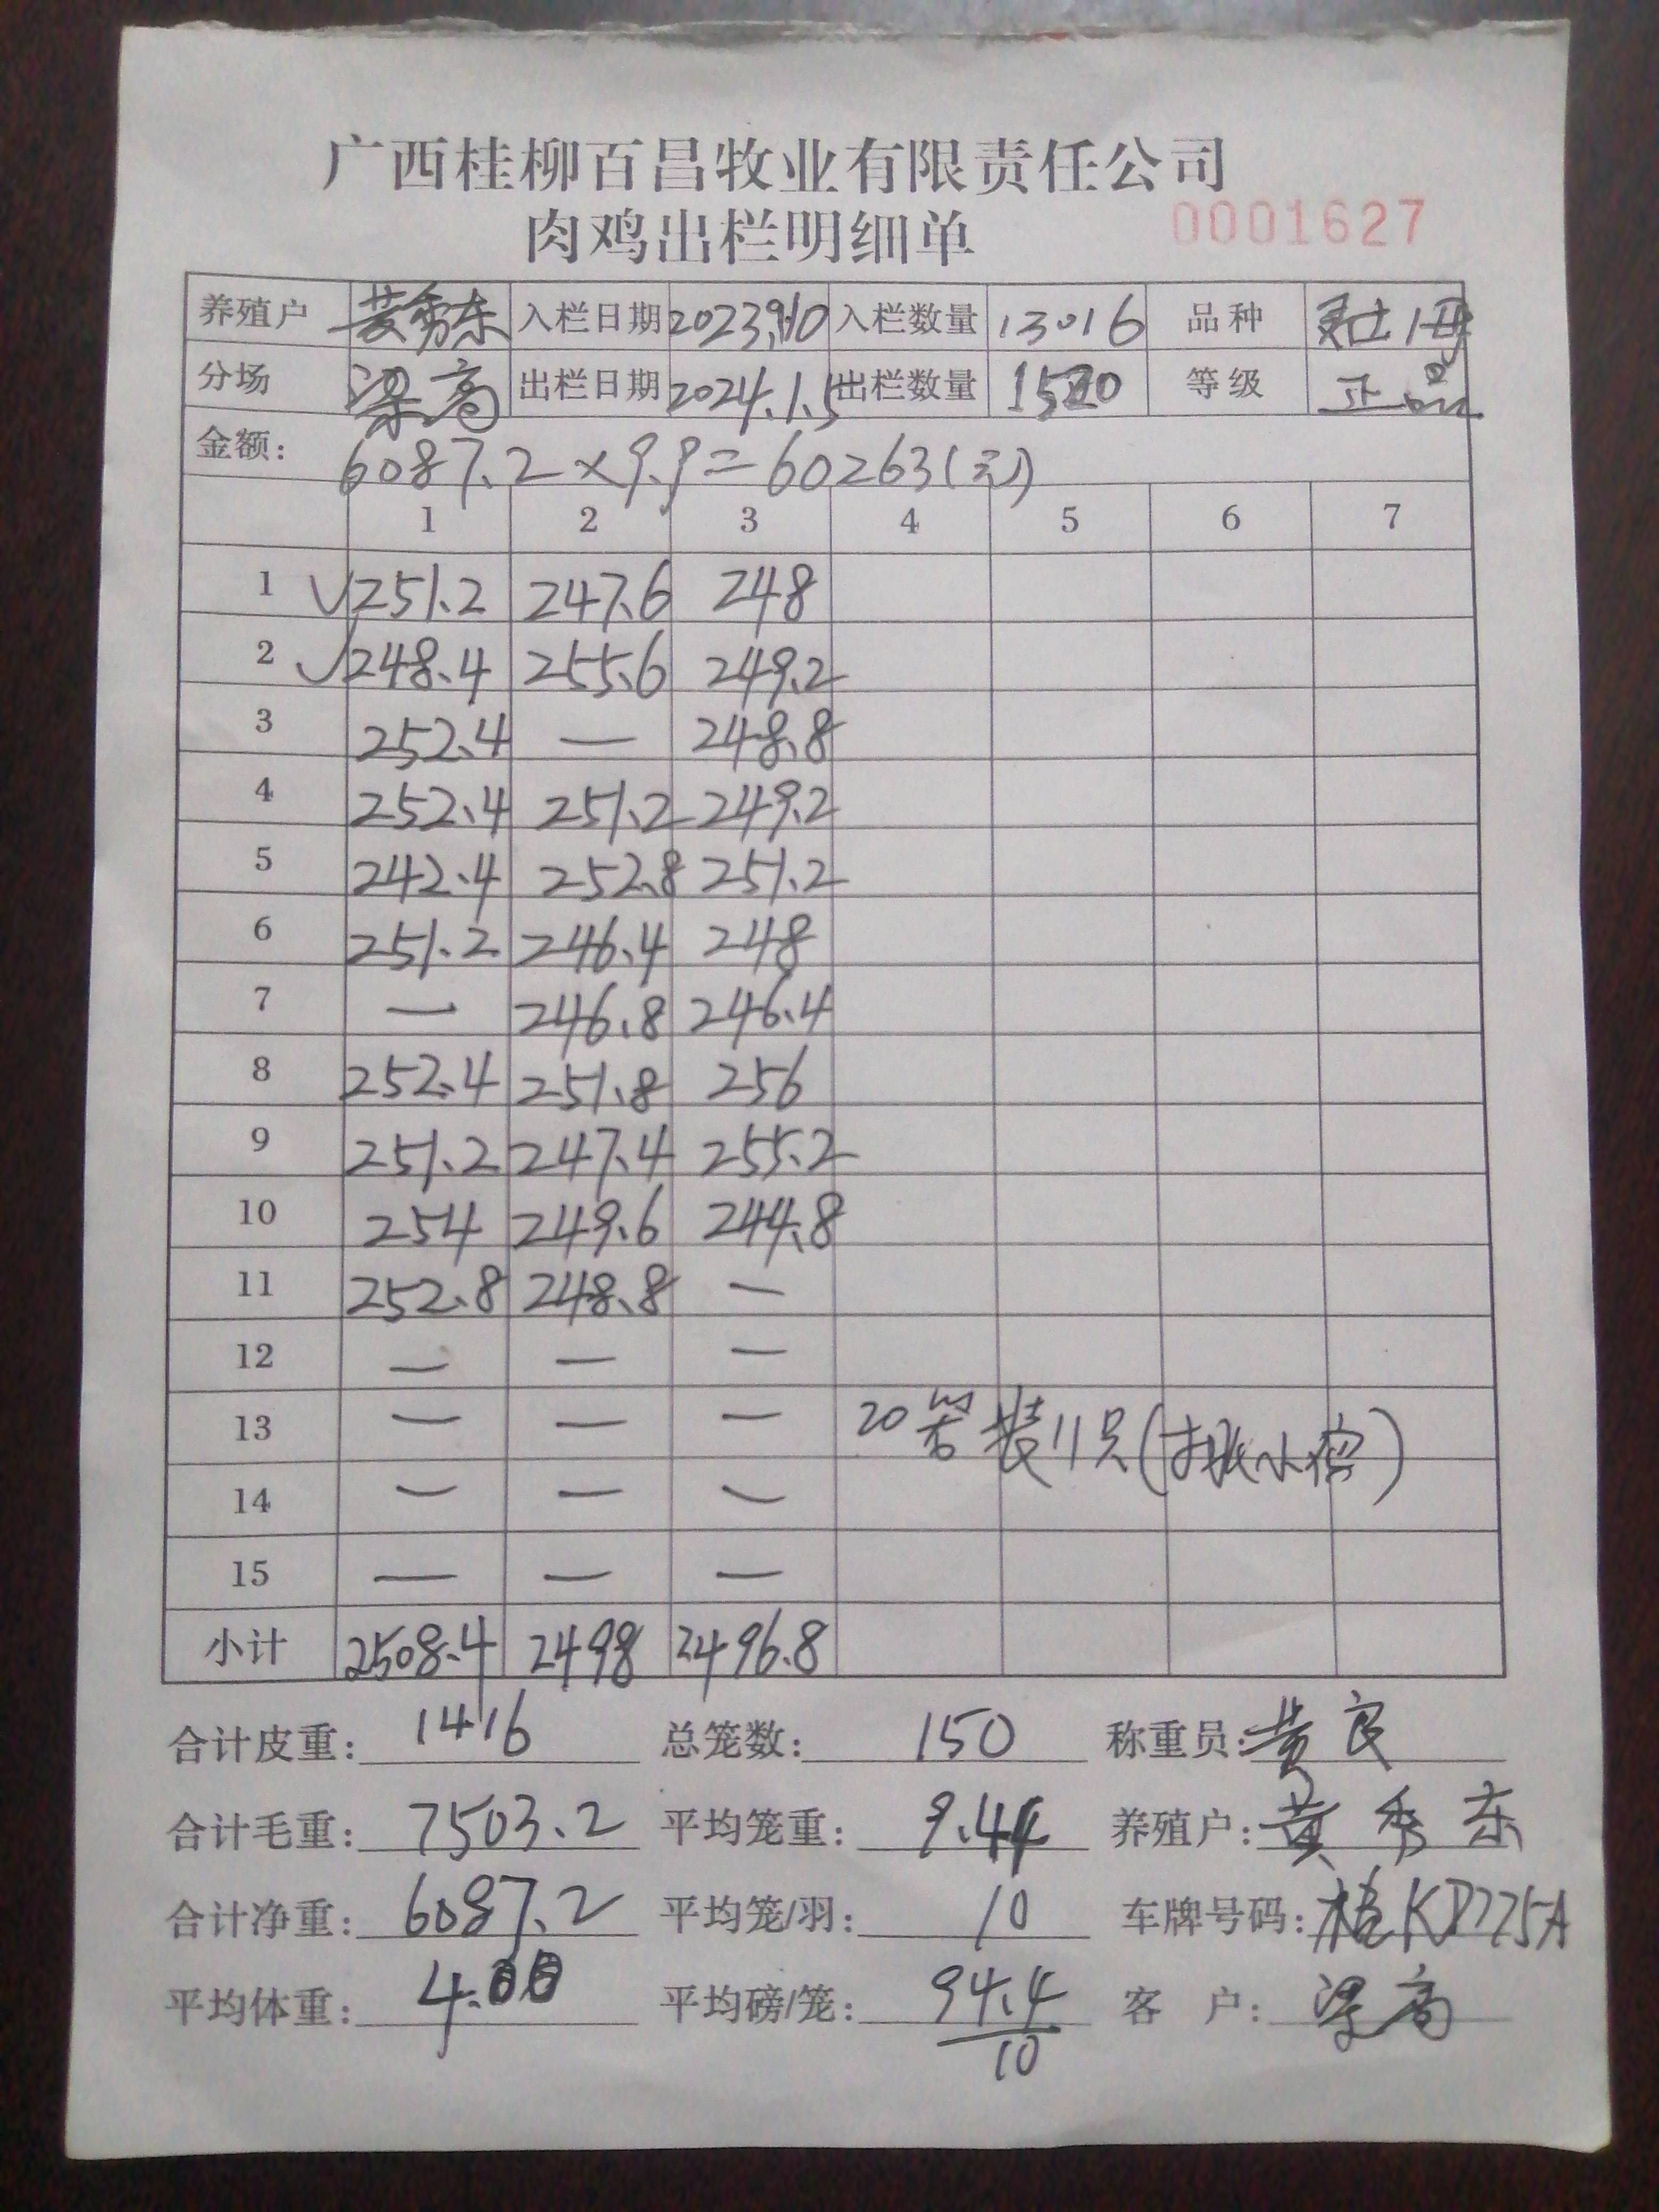 广西桂柳百昌牧业有限责任公司
肉鸡出栏明细单 0001627
养殖户 黄秀东 入栏日期 2023.9.10 入栏数量 13016 品种
分场 梁高 出栏日期 2024.1.5 出栏数量 1520 等级 正品
金额: 6087.2×9.9=60263(元)
1 2 3 4 5 6 7
1 √251.2 247.6 248
2 √248.4 255.6 249.2
3 252.4 — 248.8
4 252.4 251.2 249.2
5 242.4 252.8 251.2
6 251.2 246.4 248
7 — 246.8 246.4
8 252.4 251.8 256
9 251.2 247.4 255.2
10 254 249.6 244.8
11 252.8 248.8 —
12 — — —
13 — — — 20笼装11只(
14 — — —
15 — — —
小计 2508.4 2498 2496.8
合计皮重: 1416 总笼数: 150 称重员: 黄良
合计毛重: 7503.2 平均笼重: 9.44 养殖户: 黄秀东
合计净重: 6087.2 平均笼/羽: 10 车牌号码: 桂KD775A
平均体重: 4.00 平均磅/笼: 94.4/10 客户: 梁高